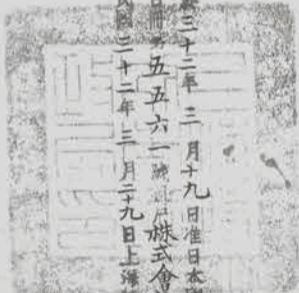 三十二年三月十九日准日本
冊第五五六一號過戶株式會
民國三十二年三月二十九日上海